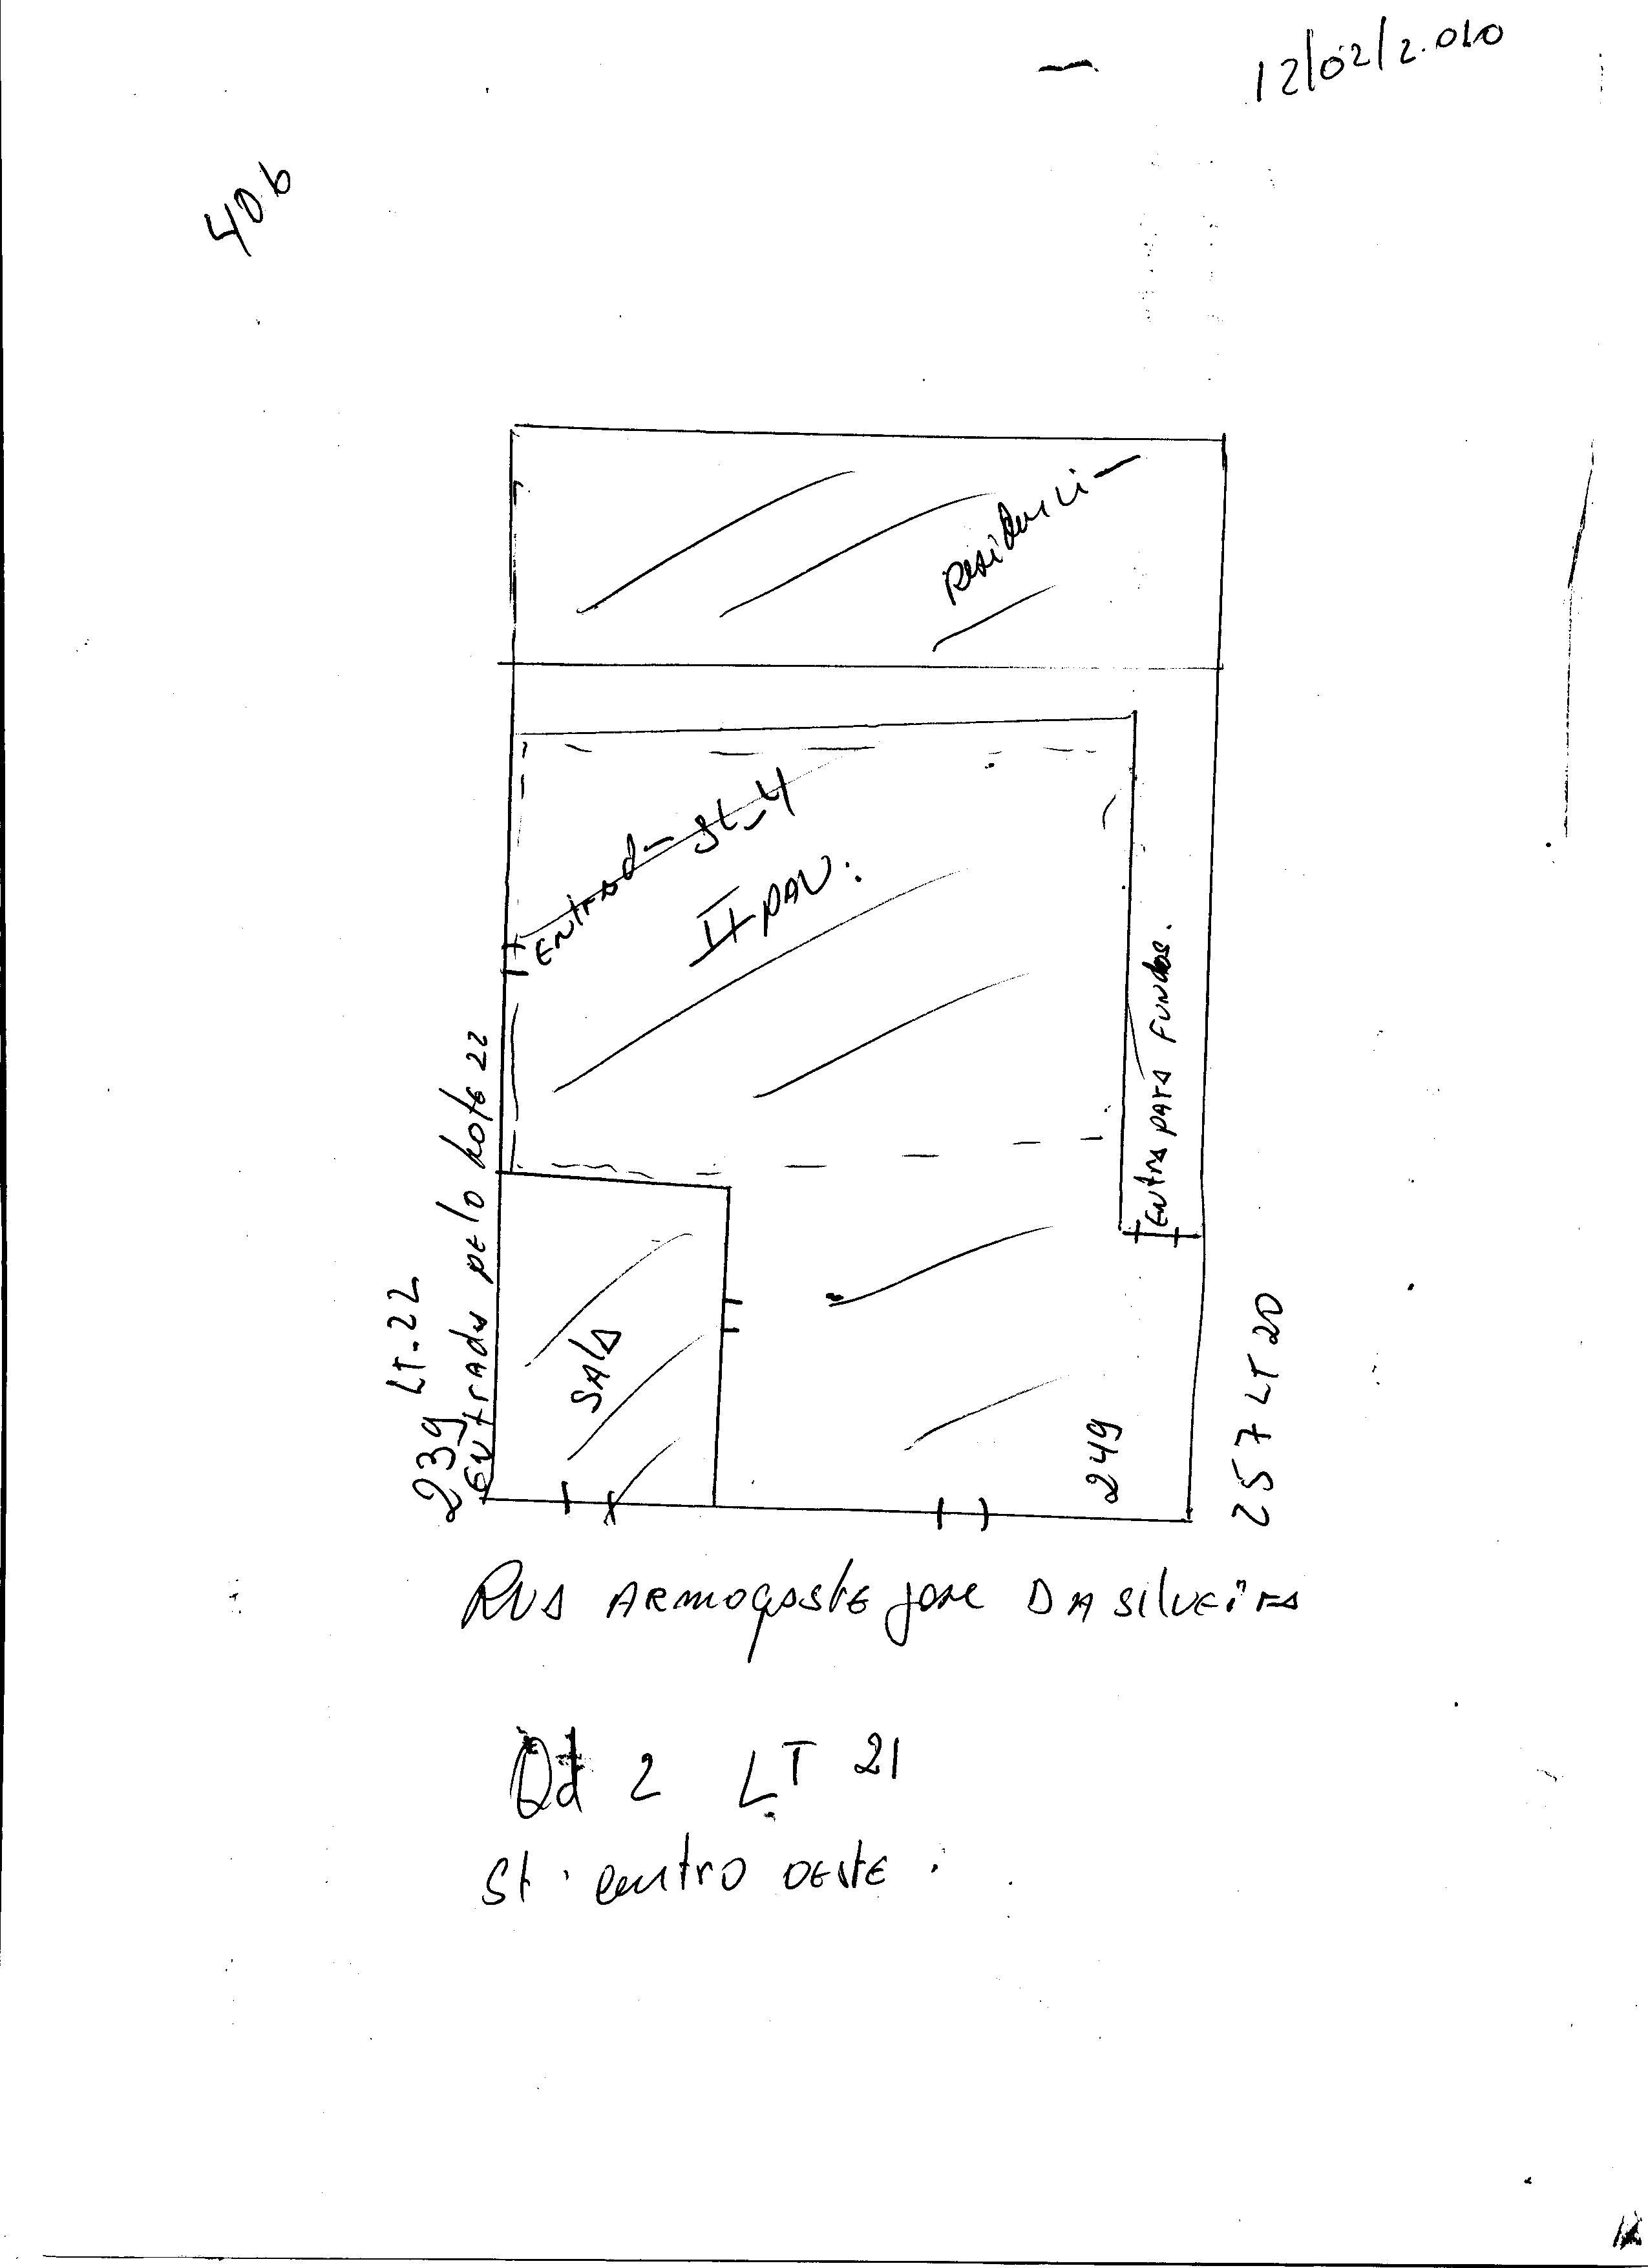 12/02/2.010
40b
Entrad- SL-4
II PAV.
Entra para Fundos.
Entrada pelo Lote 22
LT. 22
239
Sala
249
257 LT 20
Rua Armogaste Jose Da Silveira
Qd 2 LT 21
St. centro oeste.